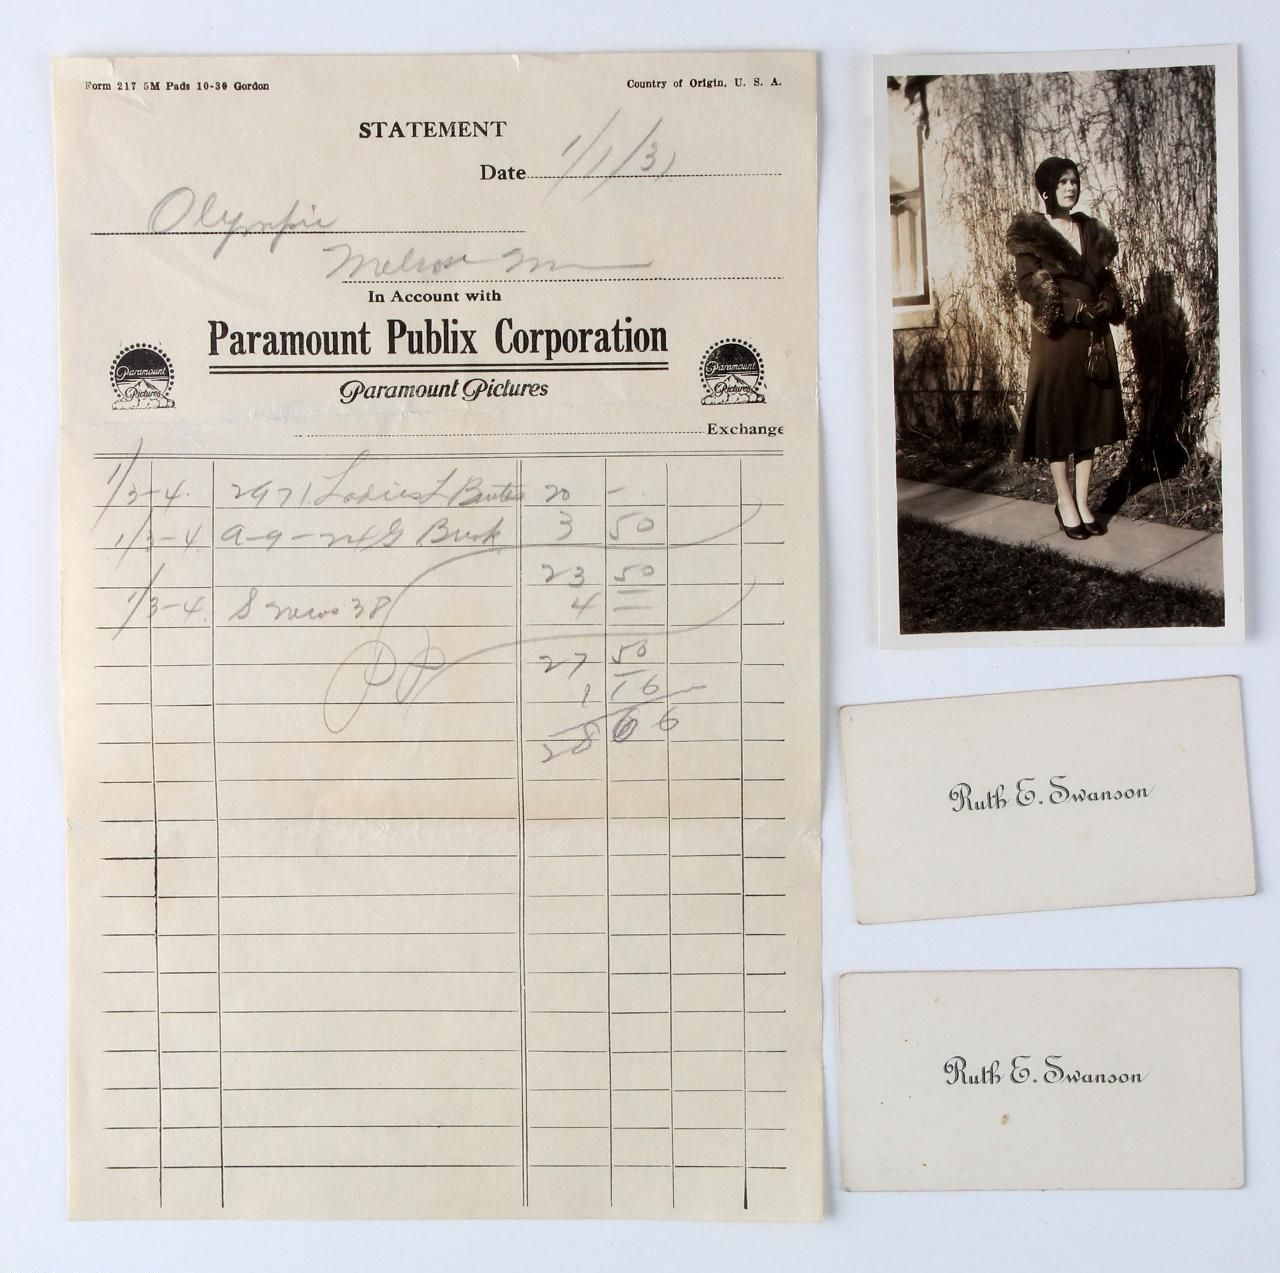 Form 217 5M Pads 10-30 Gordon Country of Origin, U. S. A.
STATEMENT
Date 1/1/31
Olympic
Melrose
In Account with
Paramount Publix Corporation
Paramount Pictures
Paramount Pictures
Paramount Pictures
Exchange
1/3-4. 2971 Ladies L 20 -
1/3-4 a-9-24 G 3 50
23 50
1/3-4. S news 38 4 -
27 50
1 16
28 66
Ruth E. Swanson
Ruth E. Swanson